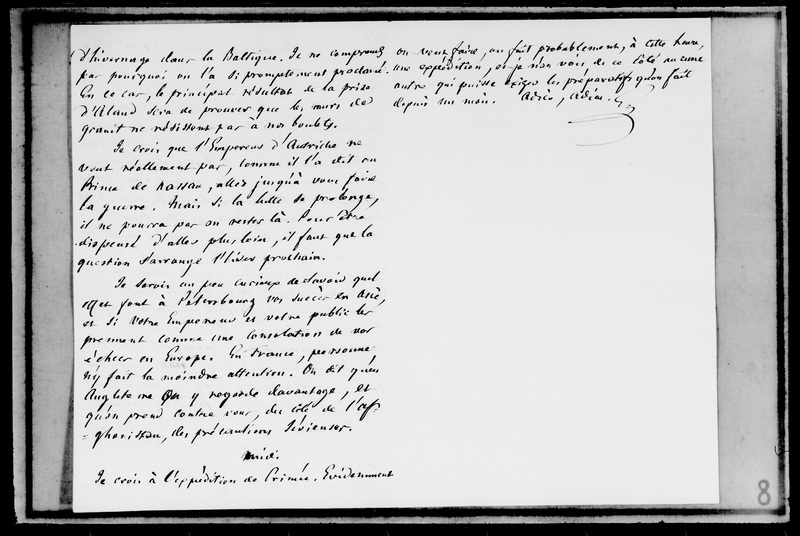 d'hivernage dans la Baltique. Je ne comprends
pas pourquoi on l'a si promptement proclamé.
En ce cas, le principal résultat de la prise
d'Aland sera de prouver que les murs de
granit ne résistent pas à nos boulets.
Je crois que l'Empereur d'Autriche ne
veut réellement pas, comme il l'a dit au
Prince de Nassau, aller jusqu'à vous faire
la guerre. Mais si la lutte se prolonge,
il ne pourra pas en rester là. Pour être
dispensé d'aller plus loin, il faut que la
question s'arrange l'hiver prochain.
Je serais un peu curieux de savoir quel
effet font à Pétersbourg vos succès en Asie,
et si votre Empereur et votre public les
prennent comme une consolation de vos
échecs en Europe. En France, personne
n'y fait la moindre attention. On dit qu'en
Angleterre on y regarde davantage, et
qu'on prend contre vous, du côté de l'Af-
=ghanistan, des précautions sérieuses.
Midi.
Je crois à l'expédition de Crimée. Evidemment
on veut faire, on fait probablement, à cette heure,
une expédition, et je n'en vois de ce côté aucune
autre qui puisse exiger les préparatifs qu'on fait
depuis un mois. Adieu, Adieu.
8